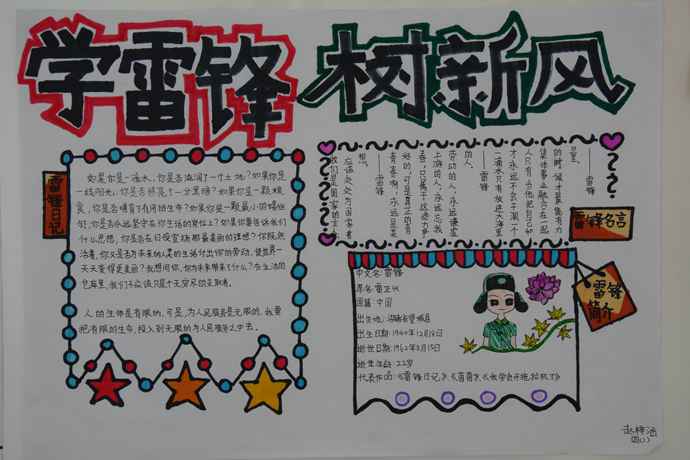 学雷锋 树新风
雷锋日记
如果你是一滴水,你是否滋润了一寸土地?如果你是
一线阳光,你是否照亮了一分黑暗?如果你是一颗粮
食,你是否哺育了有用的生命?如果你是一颗最小的螺丝
钉,你是否永远坚守在你生活的岗位上?如果你要告诉我们
什么思想,你是否在日夜宣扬那最美丽的理想?你既然
活着,你又是否为未来的人类的生活付出你的劳动,使世界一
天天变得更美丽?我想问你,你为未来带来了什么?在生活的
仓库里,我们不应该只是个无穷尽的支取者。
人的生命是有限的,可是,为人民服务是无限的,我要
把有限的生命,投入到无限的为人民服务之中去。
雷锋名言
一滴水只有放进大海里
才永远不会干涸,一个
人只有当他把自己和
集体事业融合在一起
的时候才能最有力
量。
——雷锋
——雷锋
——雷锋
雷锋简介
中文名:雷锋
原名:雷正兴
国籍:中国
出生地:湖南省望城县
出生日期:1940年12月18日
逝世日期:1962年8月15日
逝年年龄:22岁
代表作品:《雷锋日记》